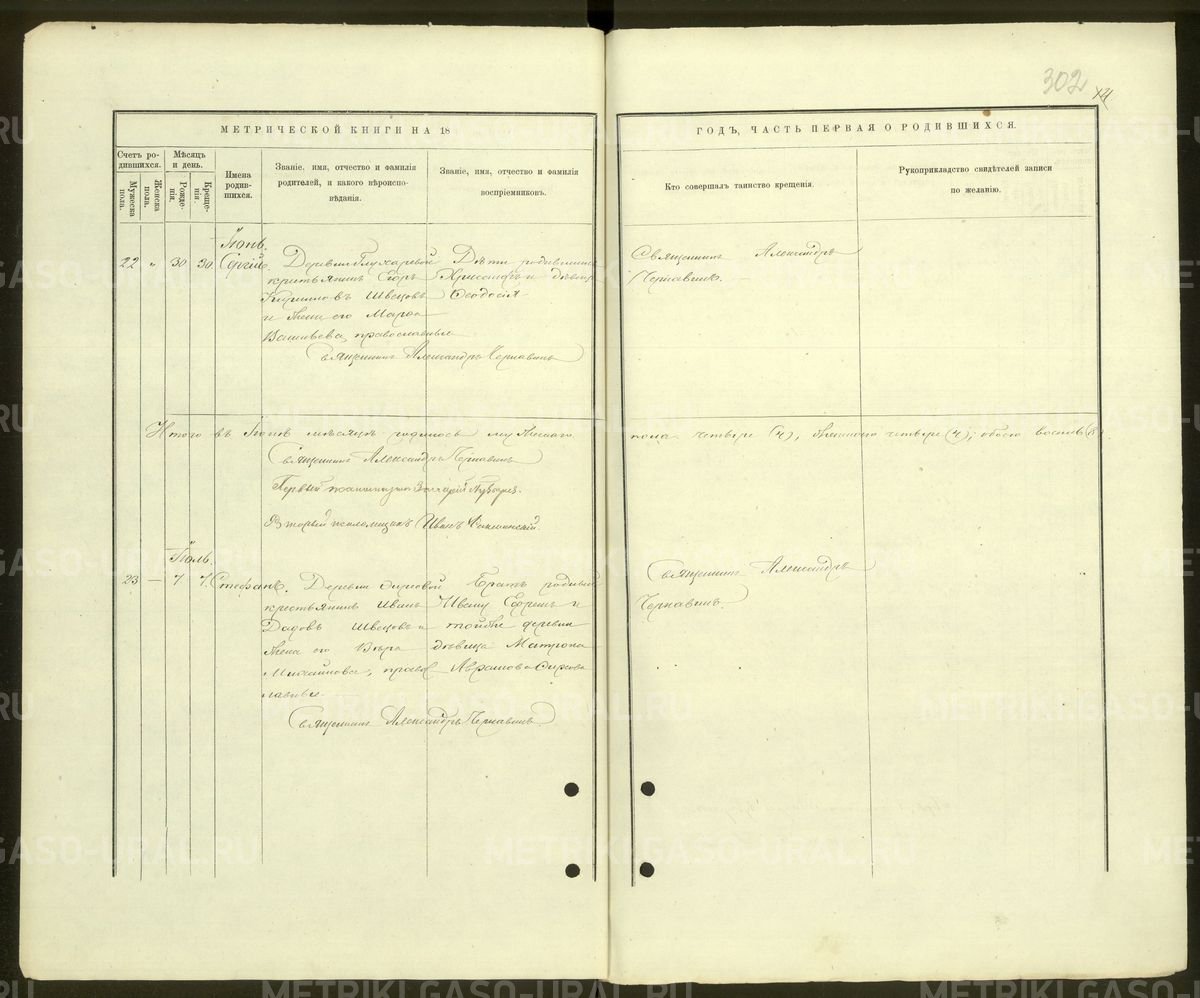 302
14
МЕТРИЧЕСКОЙ КНИГИ НА 18
ГОДЪ, ЧАСТЬ ПЕРВАЯ О РОДИВШИХСЯ.
Счетъ ро-
дившихся.
Мужеска пола.
Женска пола.
Мѣсяцъ
и день.
Рожде-
нія.
Креще-
нія.
Имена
родив-
шихся.
Званіе, имя, отчество и фамилія
родителей, и какого вѣроиспо-
вѣданія.
Званіе, имя, отчество и фамилія
воспріемниковъ.
Кто совершалъ таинство крещенія.
Рукоприкладство свидѣтелей записи
по желанію.
Іюнь.
22 " 30 30 Сергій.
Деревни Глухаревой
крестьянинъ Егоръ
Кириловъ Швецовъ
и жена его Марѳа
Васильева, православные
Дѣти родившихъ
Хрисанфъ и дѣвица
Ѳеодосія
Священникъ Александръ Чернавинъ
Священникъ Александръ
Чернавинъ.
Итого въ Іюнѣ мѣсяцѣ родилось мужескаго
пола четыре (4), женскаго четыре (4), обоего восемь (8)
Священникъ Александръ Чернавинъ
Первый Захарій
Второй псаломщикъ Иванъ
Іюль.
23 — 7 7. Стефанъ.
Деревни
крестьянинъ Иванъ
Швецовъ и
жена его Вѣра
Михайлова, право-
славные.
Братъ родив
Ефремъ и
той же деревни
дѣвица Матрона
Аврамова
Священникъ Александръ Чернавинъ.
Священникъ Александръ
Чернавинъ.
METRIKI.GASO-URAL.RU